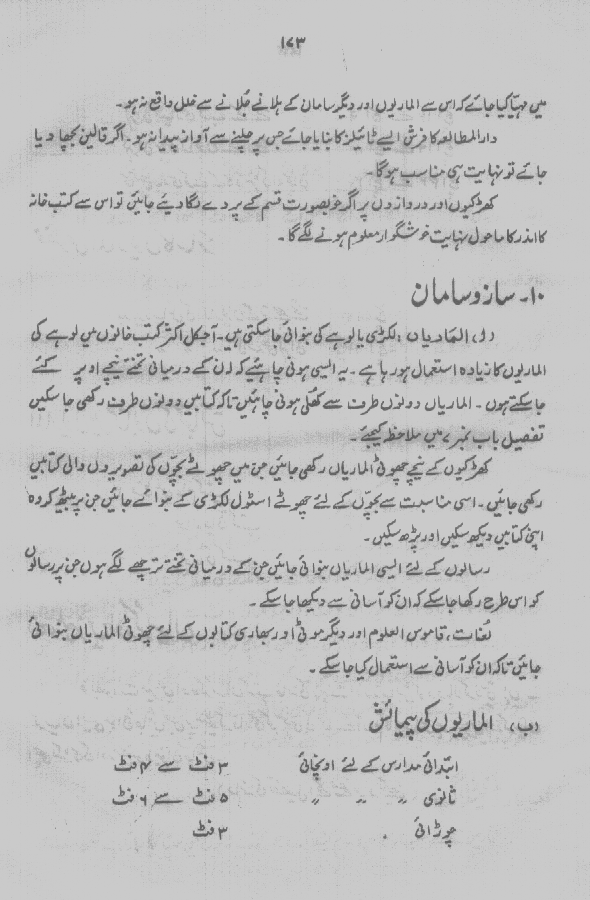 ۱۷۳
میں مہیا کیا جائے کہ اس سے الماریوں اور دیگر سامان کے ہلانے جُلانے سے خلل واقع نہ ہو۔
دارالمطالعہ کا فرش ایسے ٹائیلز کا بنایا جائے جس پر چلنے سے آواز پیدا نہ ہو۔ اگر قالین بچھا دیا
جائے تو نہایت ہی مناسب ہوگا۔
کھڑکیوں اور دروازوں پر اگر خوبصورت قسم کے پردے لگا دیئے جائیں تو اس سے کتب خانہ
کا اندر کا ماحول نہایت خوشگوار معلوم ہونے لگے گا۔
۱۰۔ ساز و سامان
(ا) الماریاں : لکڑی یا لوہے کی بنوائی جا سکتی ہیں۔ آجکل اکثر کتب خانوں میں لوہے کی
الماریوں کا زیادہ استعمال ہو رہا ہے۔ یہ ایسی ہونی چاہئیے کہ ان کے درمیانی تختے نیچے اوپر کئے
جا سکتے ہوں۔ الماریاں دونوں طرف سے کھُلی ہونی چاہئیں تاکہ کتابیں دونوں طرف رکھی جا سکیں
تفصیل باب نمبر ۷ میں ملاحظہ کیجئے۔
کھڑکیوں کے نیچے چھوٹی الماریاں رکھی جائیں جن میں چھوٹے بچوں کی تصویروں والی کتابیں
رکھی جائیں۔ اسی مناسبت سے بچوں کے لئے چھوٹے اسٹول لکڑی کے بنوائے جائیں جن پر بیٹھ کر وہ
اپنی کتابیں دیکھ سکیں اور پڑھ سکیں۔
رسالوں کے لئے ایسی الماریاں بنوائی جائیں جن کے درمیانی تختے ترچھے لگے ہوں جن پر رسالوں
کو اس طرح رکھا جا سکے کہ ان کو آسانی سے دیکھا جا سکے۔
لُغات، قاموس العلوم اور دیگر موٹی اور بھاری کتابوں کے لئے چھوٹی الماریاں بنوائی
جائیں تاکہ ان کو آسانی سے استعمال کیا جا سکے۔
(ب) الماریوں کی پیمائش
ابتدائی مدارس کے لئے اونچائی ۳ فٹ سے ۴ فٹ
ثانوی 〃 〃 〃 ۵ فٹ سے ۶ فٹ
چوڑائی ۳ فٹ